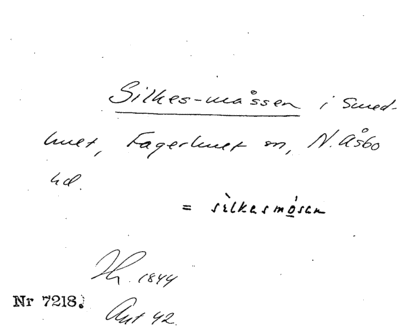 Silkes-måssen i Smed-
hult, Fagerhult sn, N. Åsbo
hd.
= sìlkesmósen
1844
Nr 7218.
Ant 42.